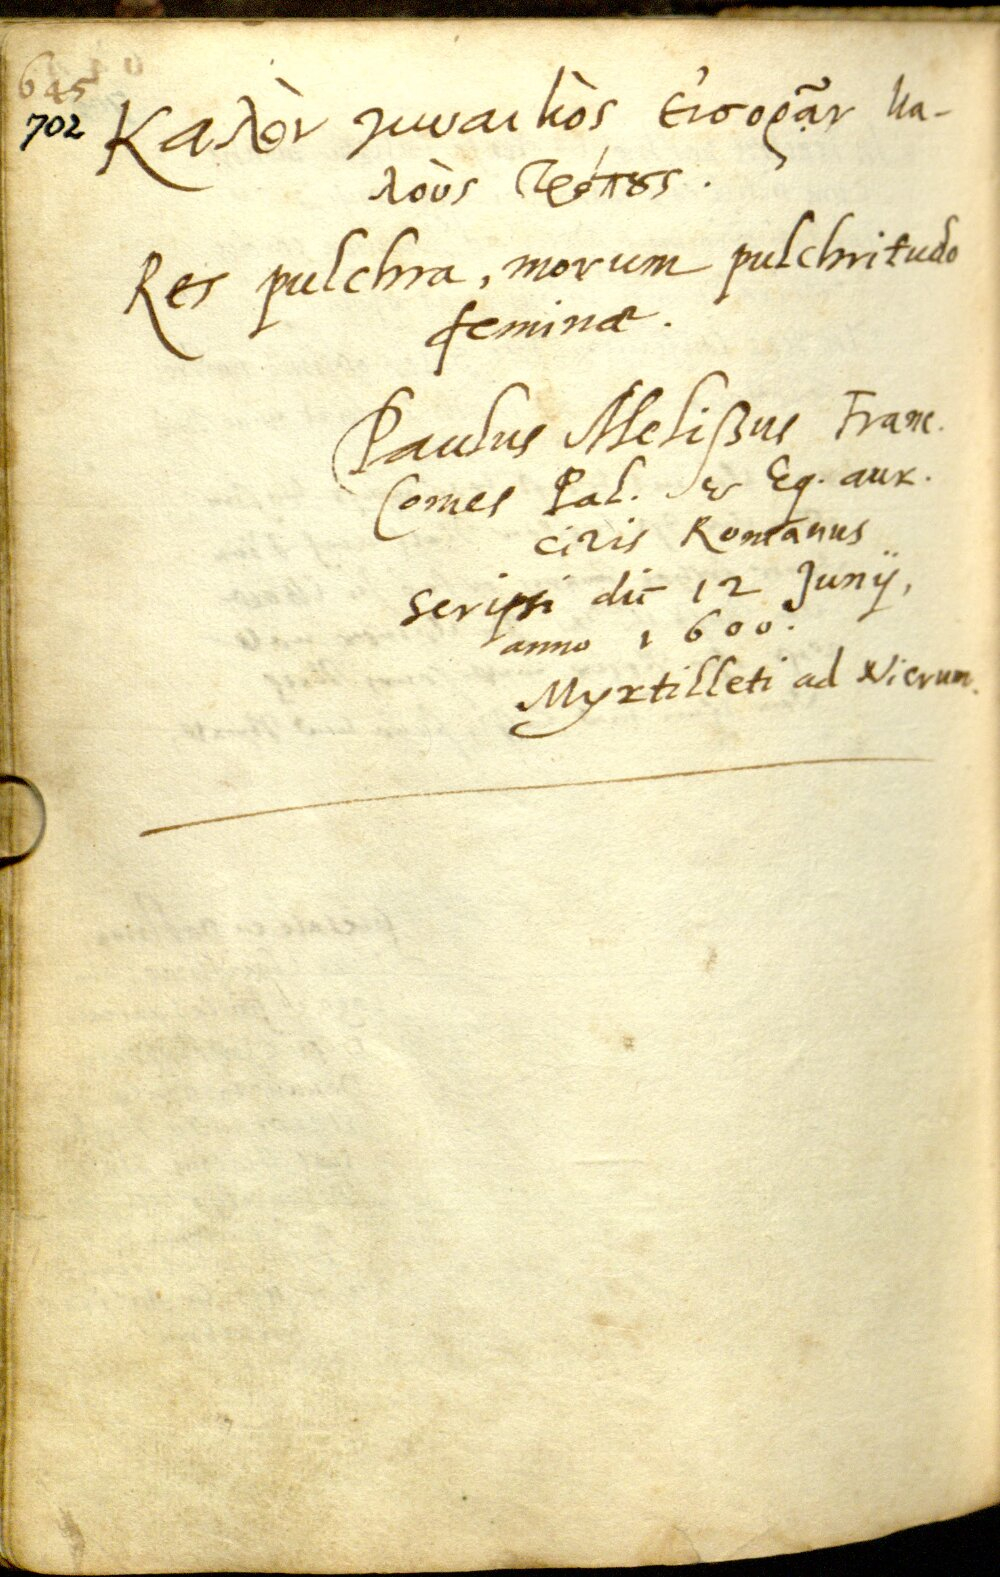 645
702
Καλὸν γυναικὸς εἰσορᾶν κα-
λοὺς τρόπους.
Res pulchra, morum pulchritudo
feminæ.
Paulus Melißus Franc.
Comes Pal. & Eq. aur.
civis Romanus
scripsi die 12 Junij,
anno 1600.
Myrtilleti ad Nicrum.